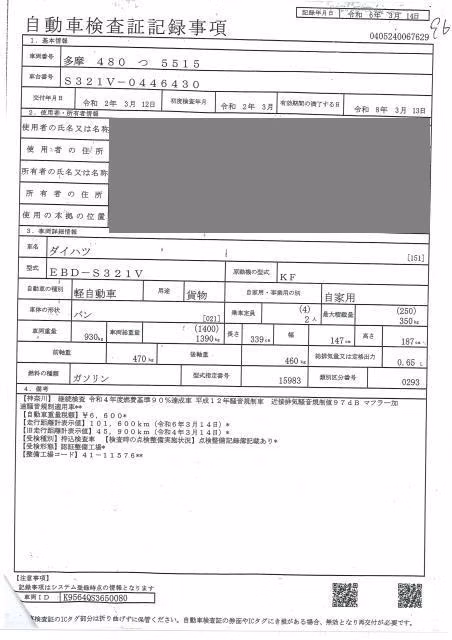 自動車検査証記録事項
記録年月日 令和 6年 3月 14日
0405240067629
1. 基本情報
車両番号 多摩 480 つ 5515
車台番号 S321V-0446430
交付年月日 令和 2年 3月 12日 初度検査年月 令和 2年 3月 有効期間の満了する日 令和 8年 3月 13日
2. 使用者・所有者情報
使用者の氏名又は名称
使用者の住所
所有者の氏名又は名称
所有者の住所
使用の本拠の位置
3. 車両詳細情報
車名 ダイハツ [151]
型式 EBD-S321V 原動機の型式 KF
自動車の種別 軽自動車 用途 貨物 自家用・事業用の別 自家用
車体の形状 バン [021] 乗車定員 (4) 2人 最大積載量 (250) 350kg
車両重量 930kg 車両総重量 (1400) 1390kg 長さ 339cm 幅 147cm 高さ 187cm
前軸重 470kg 後軸重 460kg 総排気量又は定格出力 0.65 L
燃料の種類 ガソリン 型式指定番号 15983 類別区分番号 0293
4. 備考
【神奈川】 継続検査 令和4年度燃費基準90%達成車 平成12年騒音規制車 近接排気騒音規制値97dB マフラー加
速騒音規制適用車**
【自動車重量税額】¥6,600*
【走行距離計表示値】101,600km(令和6年3月14日)*
【旧走行距離計表示値】45,900km(令和4年3月14日)*
【受検種別】持込検査車 【検査時の点検整備実施状況】点検整備記録簿記載あり*
【受検形態】認証整備工場*
【整備工場コード】41-11576**
【注意事項】
記録事項はシステム登録時点の情報となります
車両ID K9564QS3650080
検査証のICタグ部分は折り曲げずに保管ください。自動車検査証の券面やICタグにき損がある場合、無効となり再交付が必要です。